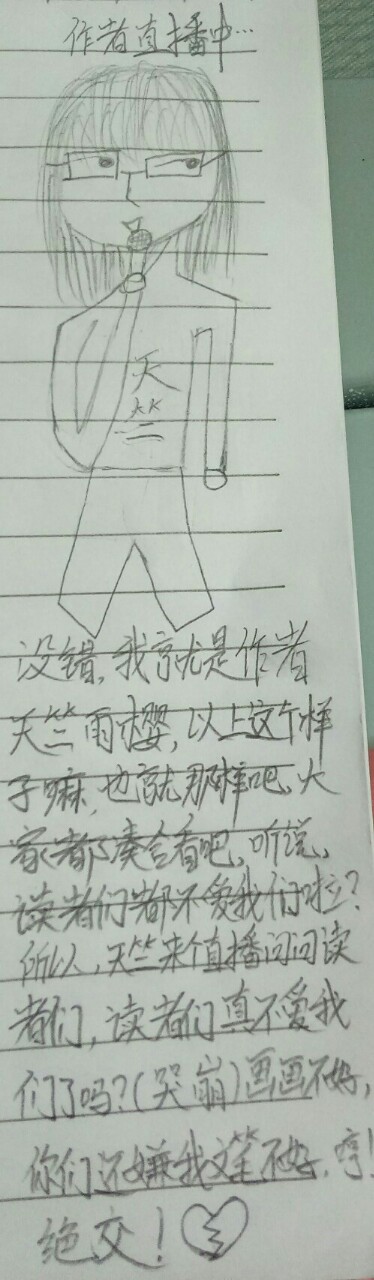 作者直播中…
天
竺
没错,我就是作者
天竺雨樱,以上这个样
子嘛,也就那样吧,大
家都凑合看吧,听说,
读者们都不爱我们啦?
所以,天竺来个直播问问读
者们,读者们真不爱我
们了吗?(哭崩)画画不好,
你们还嫌我文笔不好,哼!
绝交!